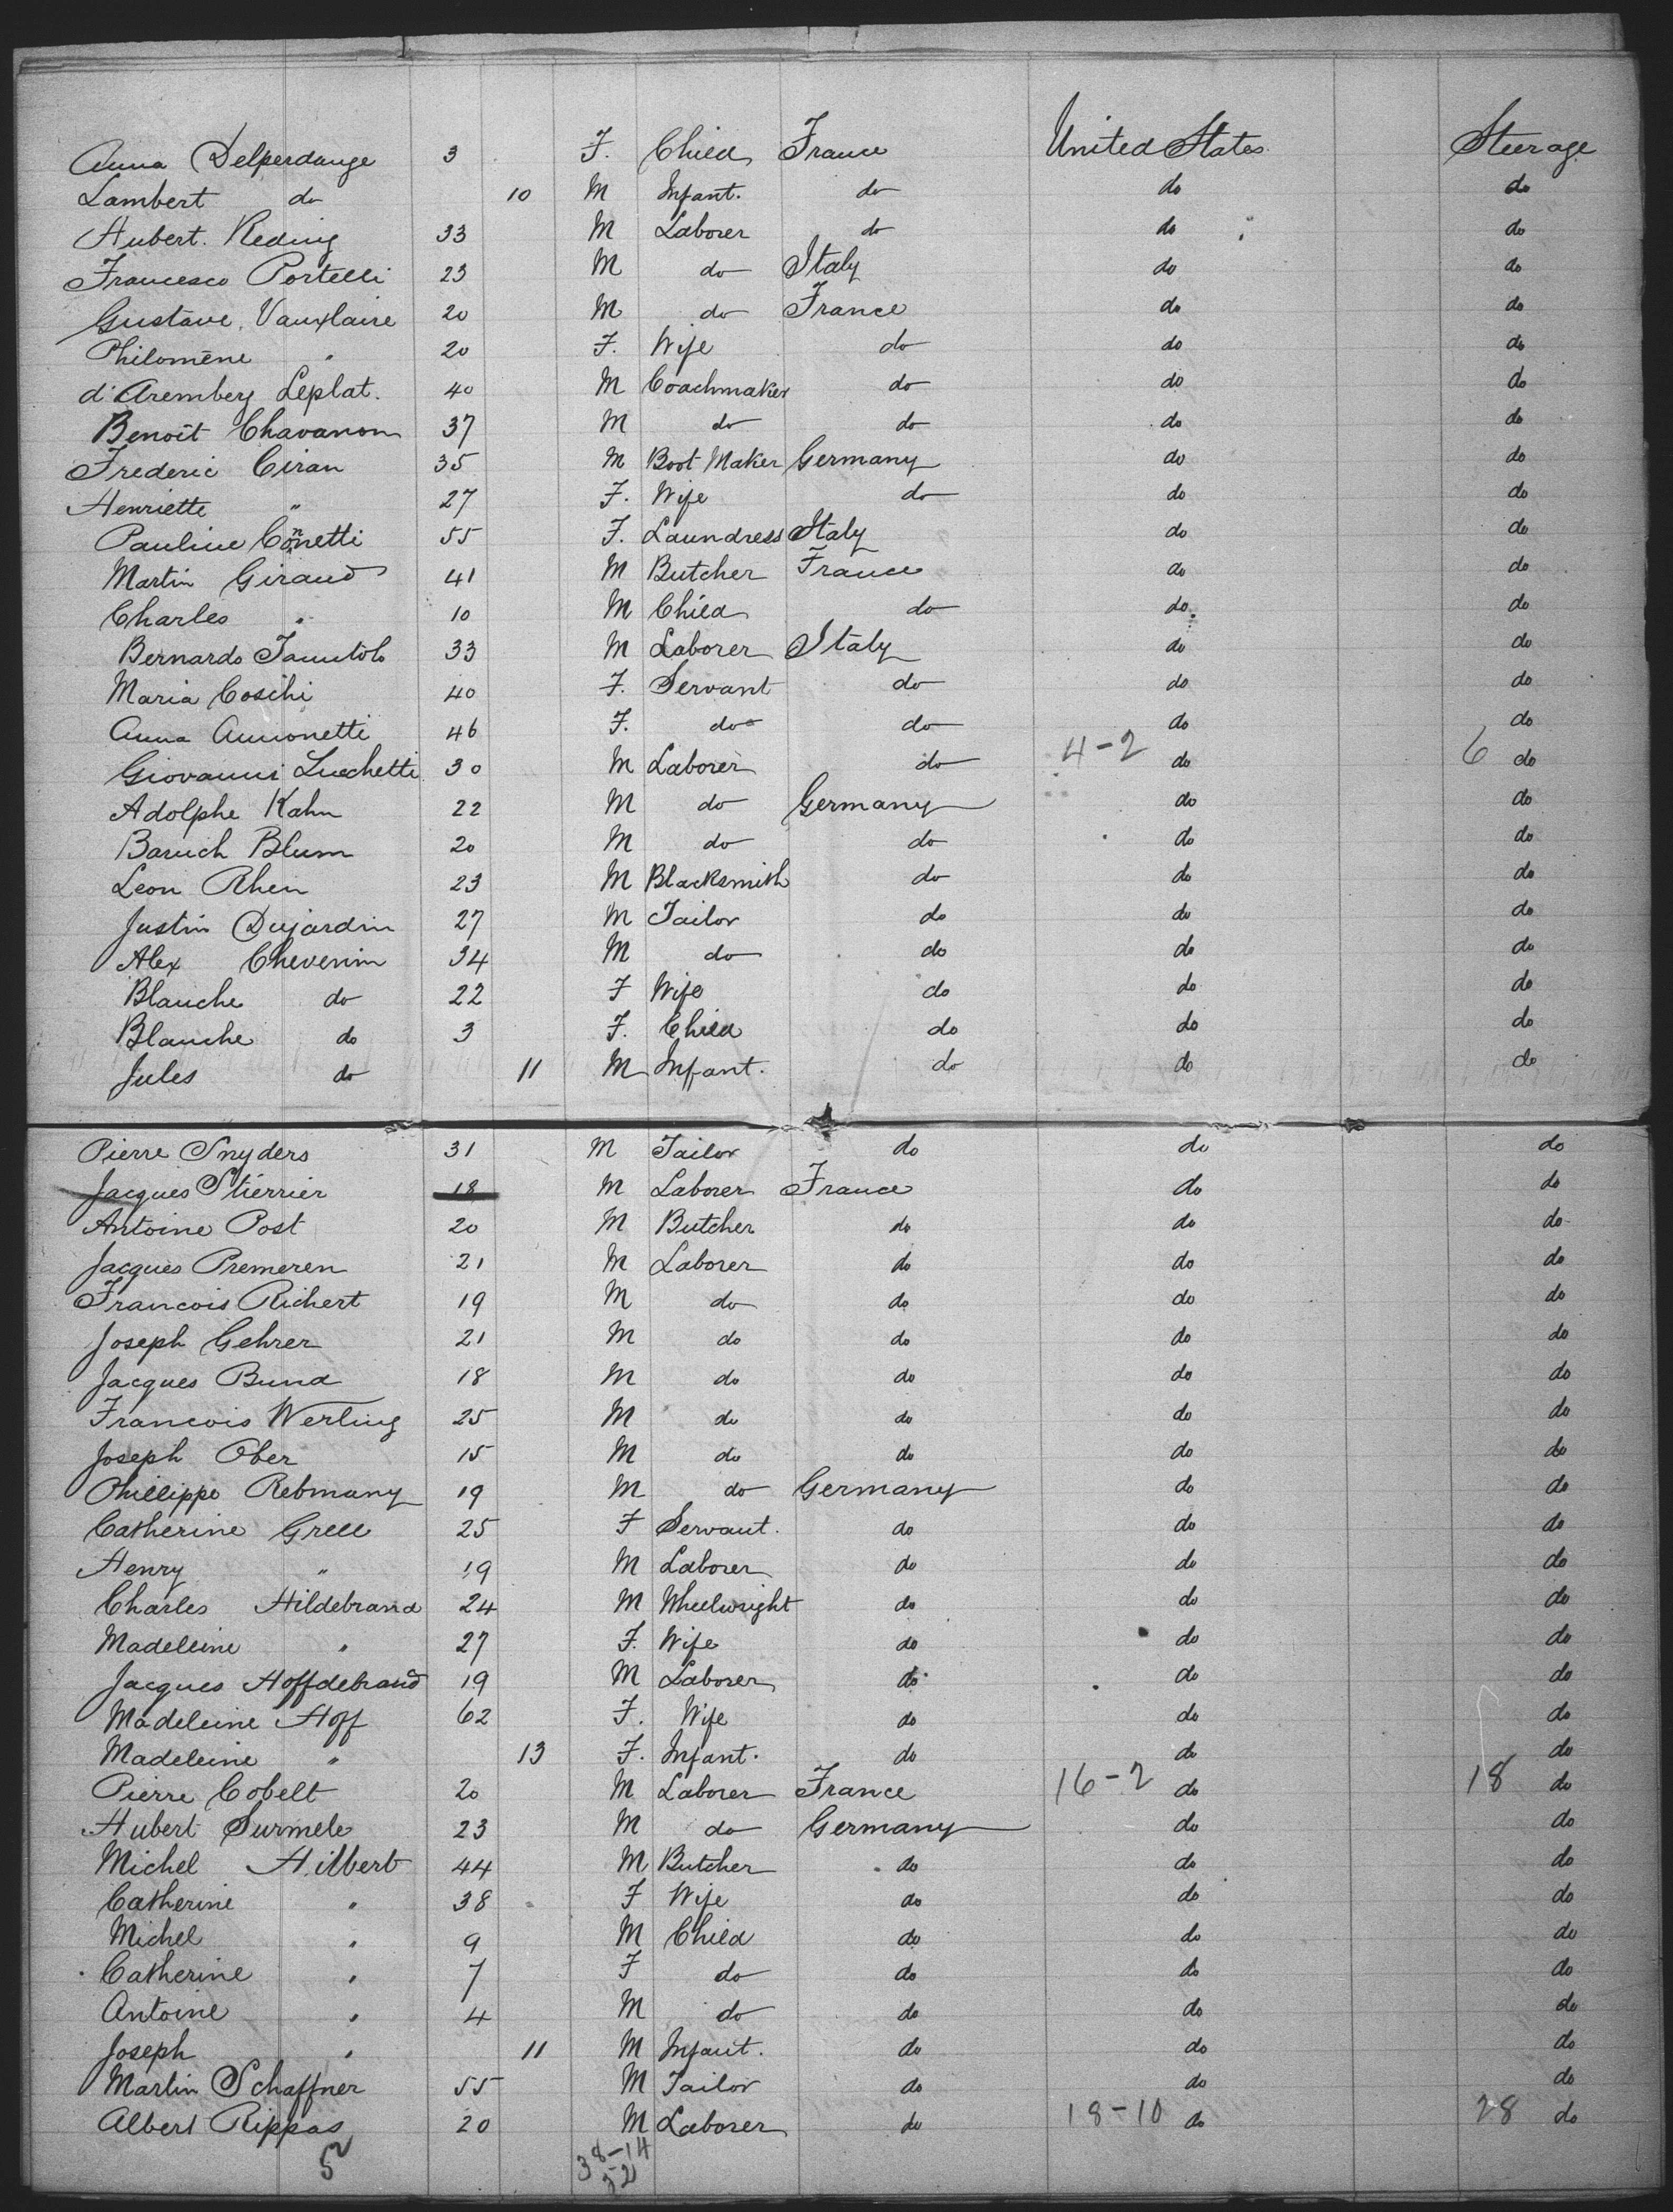 Anna Delperdange 3 F. Child France United States Steerage
Lambert do 10 M Infant. do do do
Hubert. Reding 33 M Laborer do do do
Francesco Portelli 23 M do Italy do do
Gustave. Vauxlaire 20 M do France do do
Philomène " 20 F. Wife do do do
d'Aremberg Leplat. 40 M Coachmaker do do do
Benoît Chavanon 37 M do do do do
Frederic Ciran 35 M Boot Maker Germany do do
Henriette " 27 F. Wife do do do
Pauline Connetti 55 F. Laundress Italy do do
Martin Giraud 41 M Butcher France do do
Charles " 10 M Child do do do
Bernardo 33 M Laborer Italy do do
Maria Coschi 40 F. Servant do do do
Anna Annonetti 46 F. do do do do
Giovanni Lucchetti 30 M Laborer do 4-2 do 6 do
Adolphe Kahn 22 M do Germany do do
Baruch Blum 20 M do do do do
Leon Rhein 23 M Blacksmith do do do
Justin Dujardin 27 M Tailor do do do
Alex Cheverim 34 M do do do do
Blanche do 22 F Wife do do do
Blanche do 3 F. Child do do do
Jules do 11 M Infant. do do do
Pierre Snyders 31 M Tailor do do do
Jacques Stierrier 18 M Laborer France do do
Antoine Post 20 M Butcher do do do
Jacques Premeren 21 M Laborer do do do
Francois Richert 19 M do do do do
Joseph Gehrer 21 M do do do do
Jacques Bund 18 M do do do do
Francois Werling 25 M do do do do
Joseph Ober 15 M do do do do
Phillippe Rebmany 19 M do Germany do do
Catherine Grell 25 F Servant. do do do
Henry " 19 M Laborer do do do
Charles Hildebrand 24 M Wheelwright do do do
Madeleine " 27 F. Wife do do do
Jacques Hoffdebrand 19 M Laborer do do do
Madeleine Hoff 62 F. Wife do do do
Madeleine " 13 F. Infant. do do do
Pierre Cobelt 20 M Laborer France 16-2 do 18 do
Hubert Surmele 23 M do Germany do do
Michel Hilbert 44 M Butcher do do do
Catherine " 38 F Wife do do do
Michel " 9 M Child do do do
Catherine " 7 F do do do do
Antoine " 4 M do do do do
Joseph " 11 M Infant. do do do
Martin Schaffner 55 M Tailor do do do
Albert Rippas 20 M Laborer do 18-10 do 28 do
52 38-14
52